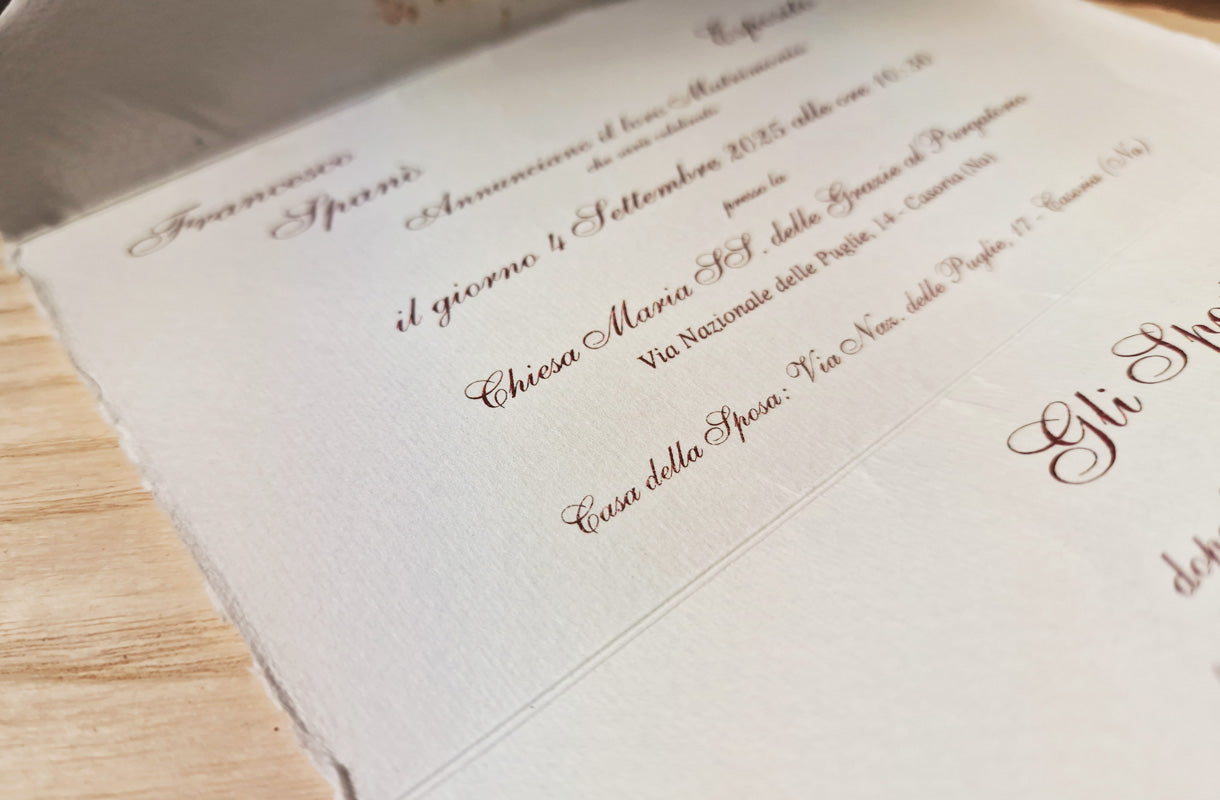 Esposito
Francesco
Spanò
Annunciano il loro Matrimonio
che sarà celebrato
il giorno 4 Settembre 2025 alle ore 10:30
presso la
Chiesa Maria SS. delle Grazie al Purgatorio
Via Nazionale delle Puglie, 14 - Casoria (Na)
Casa della Sposa: Via Naz. delle Puglie, 17 - Casoria (Na)
Gli Spo